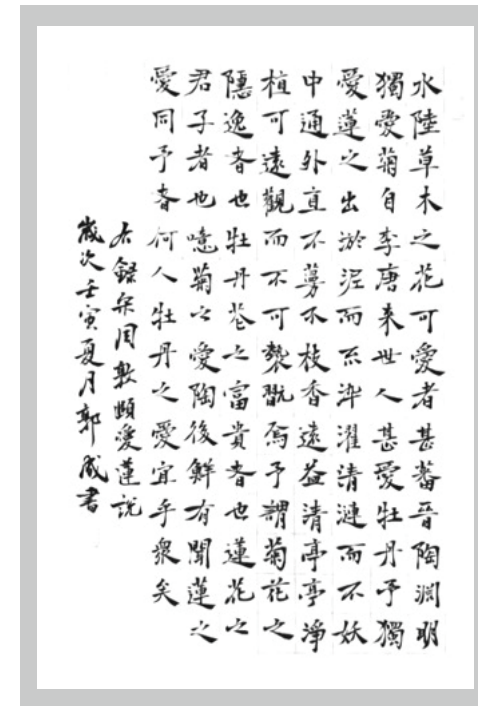 水陸草木之花可愛者甚蕃晉陶淵明
獨愛菊自李唐來世人甚愛牡丹予獨
愛蓮之出淤泥而不染濯清漣而不妖
中通外直不蔓不枝香遠益清亭亭淨
植可遠觀而不可褻翫焉予謂菊花之
隱逸者也牡丹花之富貴者也蓮花之
君子者也噫菊之愛陶後鮮有聞蓮之
愛同予者何人牡丹之愛宜乎衆矣
右錄宋周敦頤愛蓮說
歲次壬寅夏月郭成書